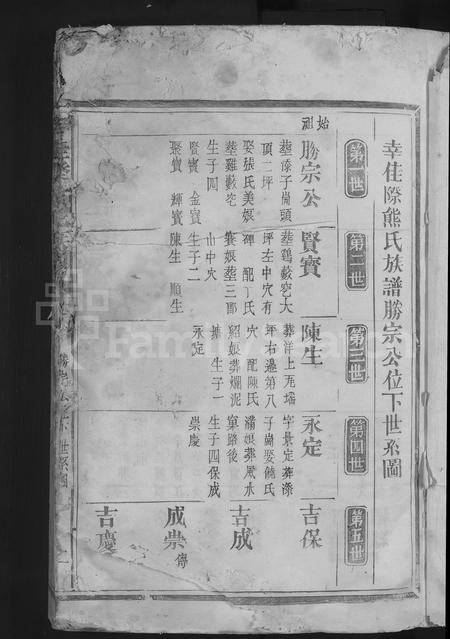 幸佳際熊氏族譜勝宗公位下世系圖
第一世
第二世
第三世
第四世
第五世
始祖
勝宗公
葬滌子崗頭
頂二坪
娶張氏美娘
葬雞藪窠
生子四
賢寶 金寶
聚寶 輝寶
賢寶
葬鷄藪窠大
坪左中穴有
碑 配丁氏
賽娘葬三郎
山中穴
生子二
陳生 順生
陳生
葬洋上旡瑤
坪右邉第八
穴 配陳氏
紹娘葬爛泥
生子一
永定
永定
字景定葬漈
子崗娶饒氏
滿娘葬風水
窠路後
生子四保成
崇慶
吉保
吉成
成崇
傳
吉慶
FamilySearch